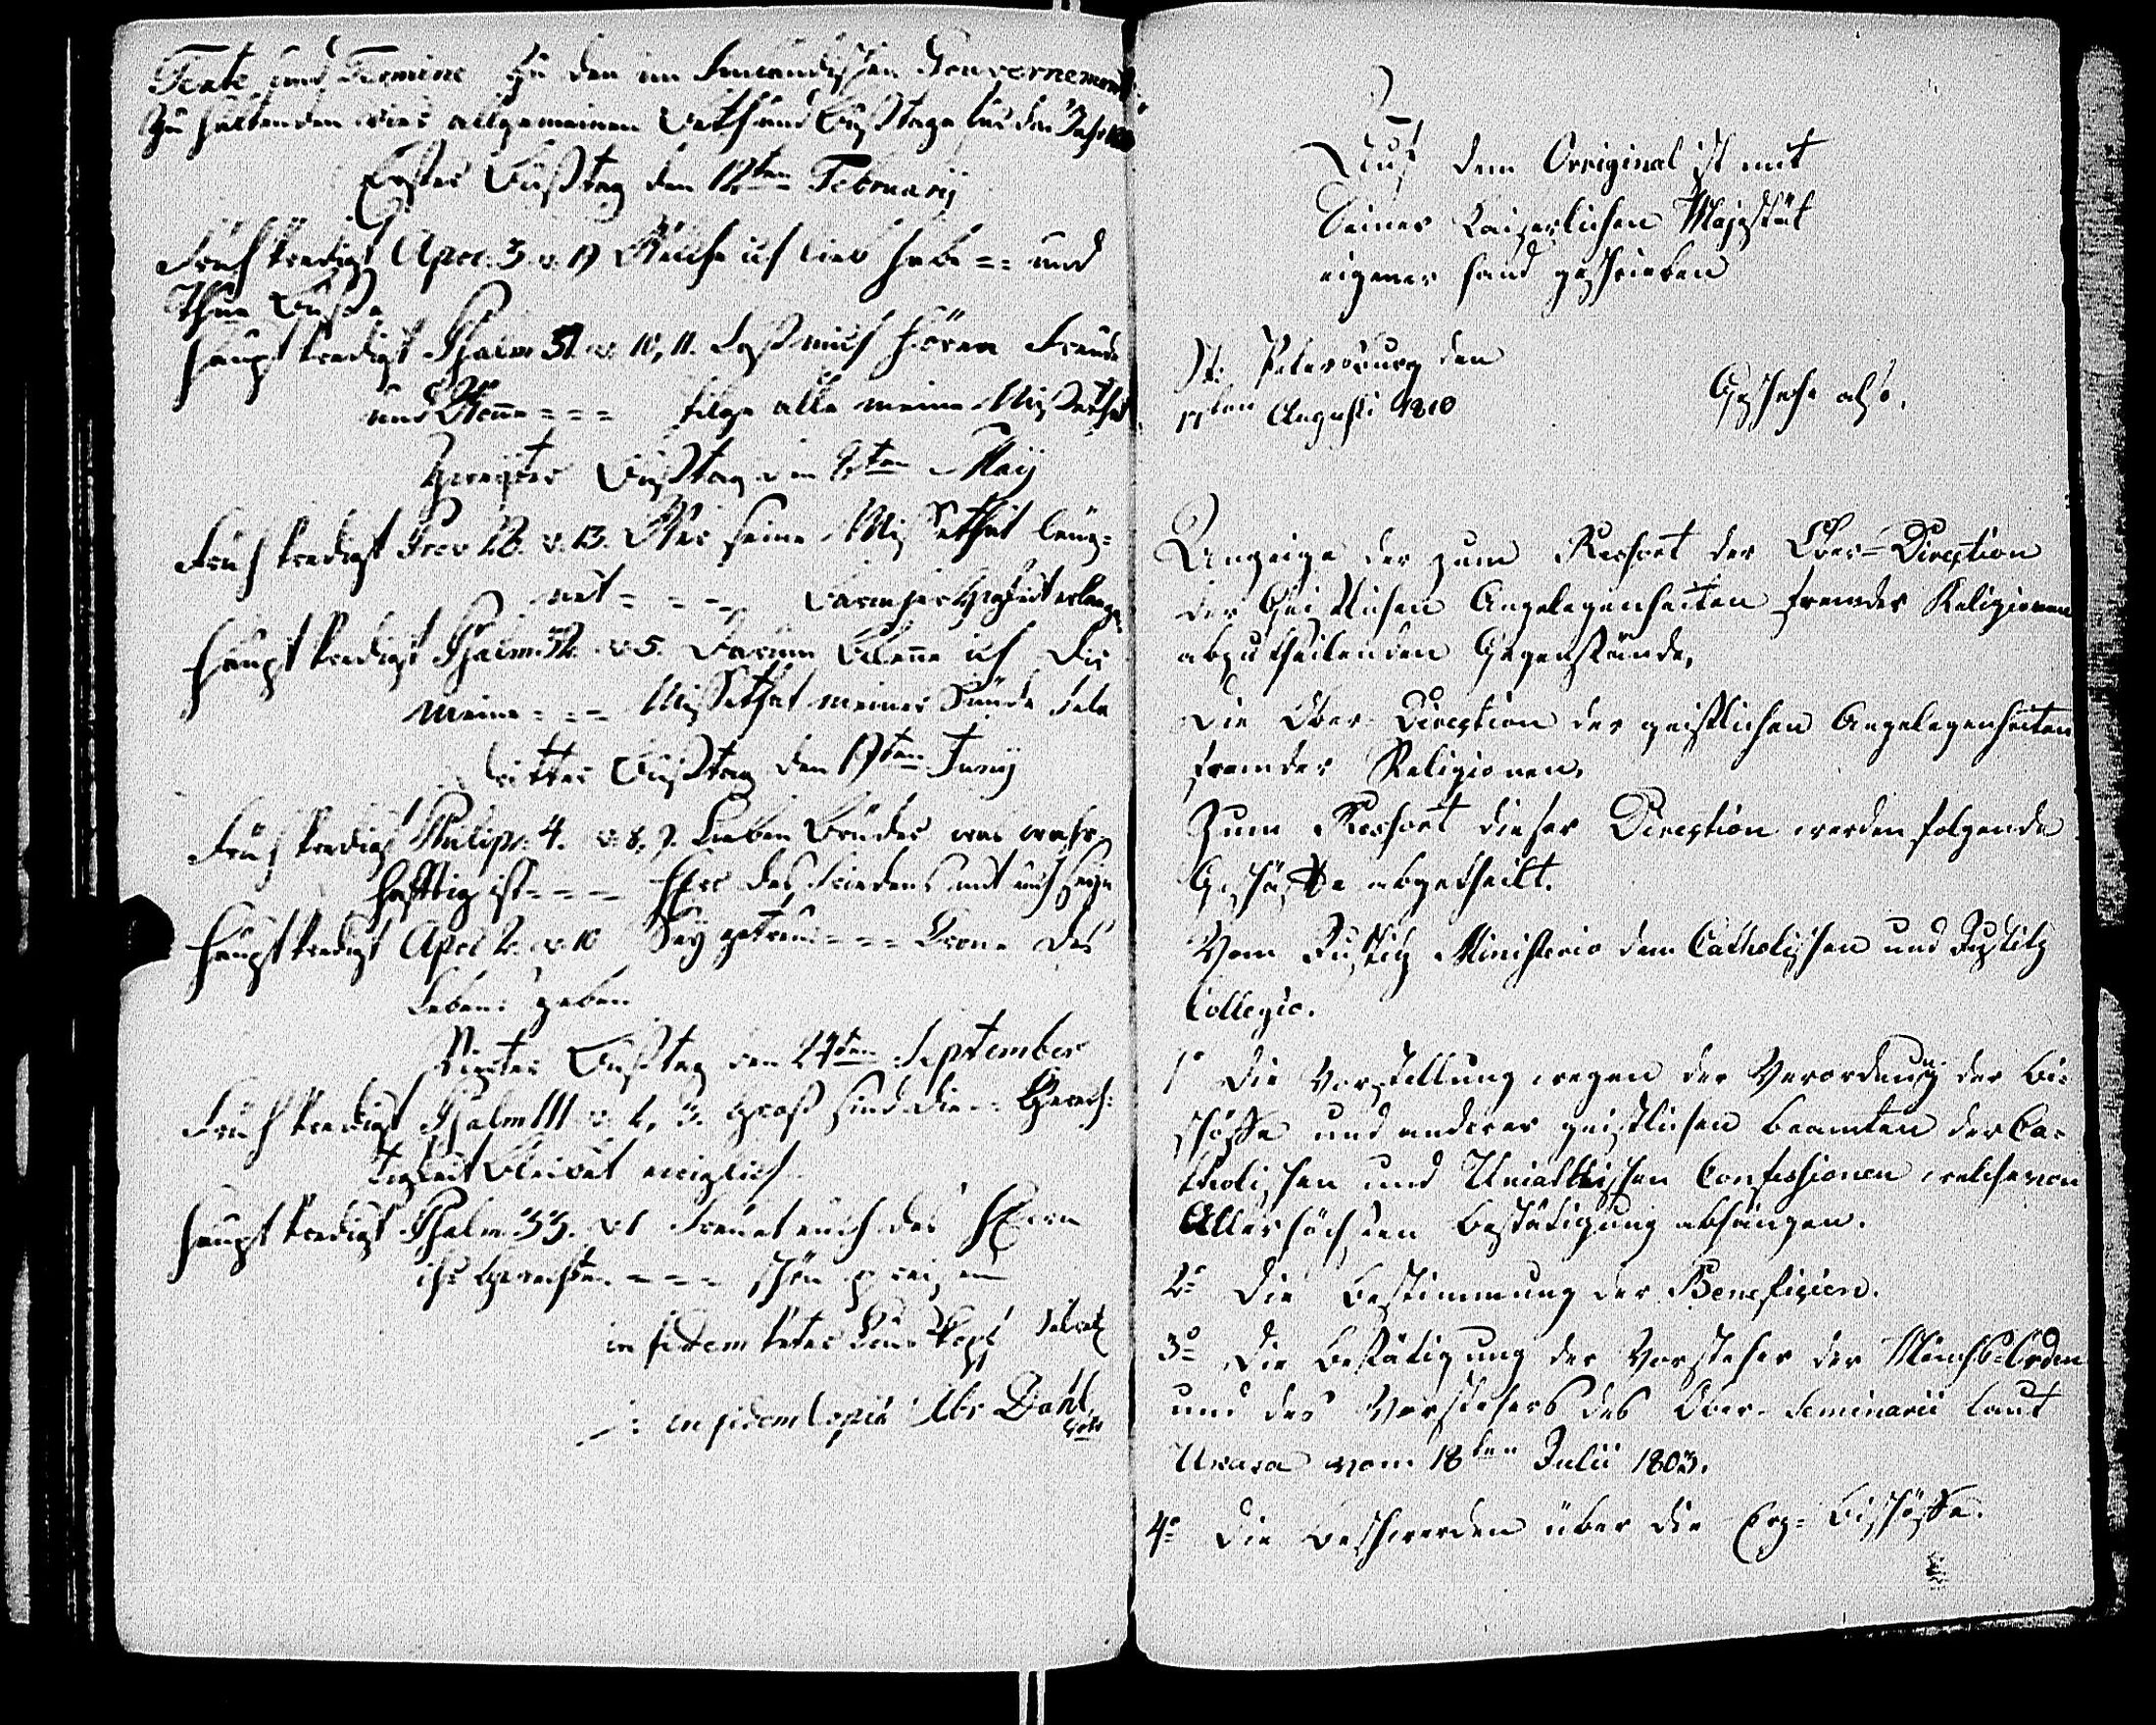 Texte und Termine zu den im Finnländischen Gouvernement
zu haltenden vier allgemeinen Beth und Bußtage für das Jahr
Erster Bußtag den 18ten Februarij
Früh Predigt Apoc. 3. v. 19 Welche ich lieb habe -- und
thue Buße
Haupt Predigt Psalm 51. v. 10, 11. Laß mich hören Freude
und Wonne --- tilge alle meine Missethat
Zweyter Bußtag den Maij
Früh Predigt Prov 28. v. 13. Wer seine Missethat läug-
net --- Barmherzigkeit erlangen
Haupt Predigt Psalm 32. v 5. Darum bekenne ich Dir
meine --- Missethat meiner Sünde Sela
Dritter Bußtag den 17ten Junij
Früh Predigt Philipp. 4. v. 8, 9. Lieben Brüder was wahr-
hafftig ist --- HErr des Friedens mit euch seyn
Haupt Predigt Apoc 2. v. 10 Sey getreu --- Krone des
Lebens geben
Vierter Bußtag den 24ten September
Früh Predigt Psalm 111 v. 2, 3. Groß sind die -- Gerech-
tigkeit bleibet ewiglich
Haupt Predigt Psalm 33. v 1 Freuet euch des HErrn
ihr Gerechten --- schön preisen
in fidem Peter
in fidem Copiæ Abr Dahl
Auf dem Orriginal ist mit
Seiner Kaiserlichen Majestät
eigener Hand geschrieben
St: Petersburg den
17ten Augusti 1810
Geschehe also.
Anzeige der zum Ressort der Ober-Direction
der Geistlichen Angelegenheiten fremder Religionen
abzutheilenden Gegenstände,
Die Ober Direction der geistlichen Angelegenheiten
fremder Religionen,
Zum Ressort dieser Direction werden folgende
Geschäffte abgetheilt.
Vom Justitz Ministerio dem Catholischen und Justitz
Collegio.
1° Die Vorstellung wegen der Verordnung der Bi-
schöffe und anderer geistlichen Beamten der Ca-
tholischen und Uniathischen Confessionen welche von
Allerhöchsten Bestätigung abhängen.
2° Die Bestimmung der Benefizien.
3° Die Bestätigung der Vorsteher der Mönchs-Orden
und des Vorstehers des Ober Seminarii laut
Ukasa vom 18ten Julii 1803.
4° Die Beschwerden über die Erz-Bischöffe.